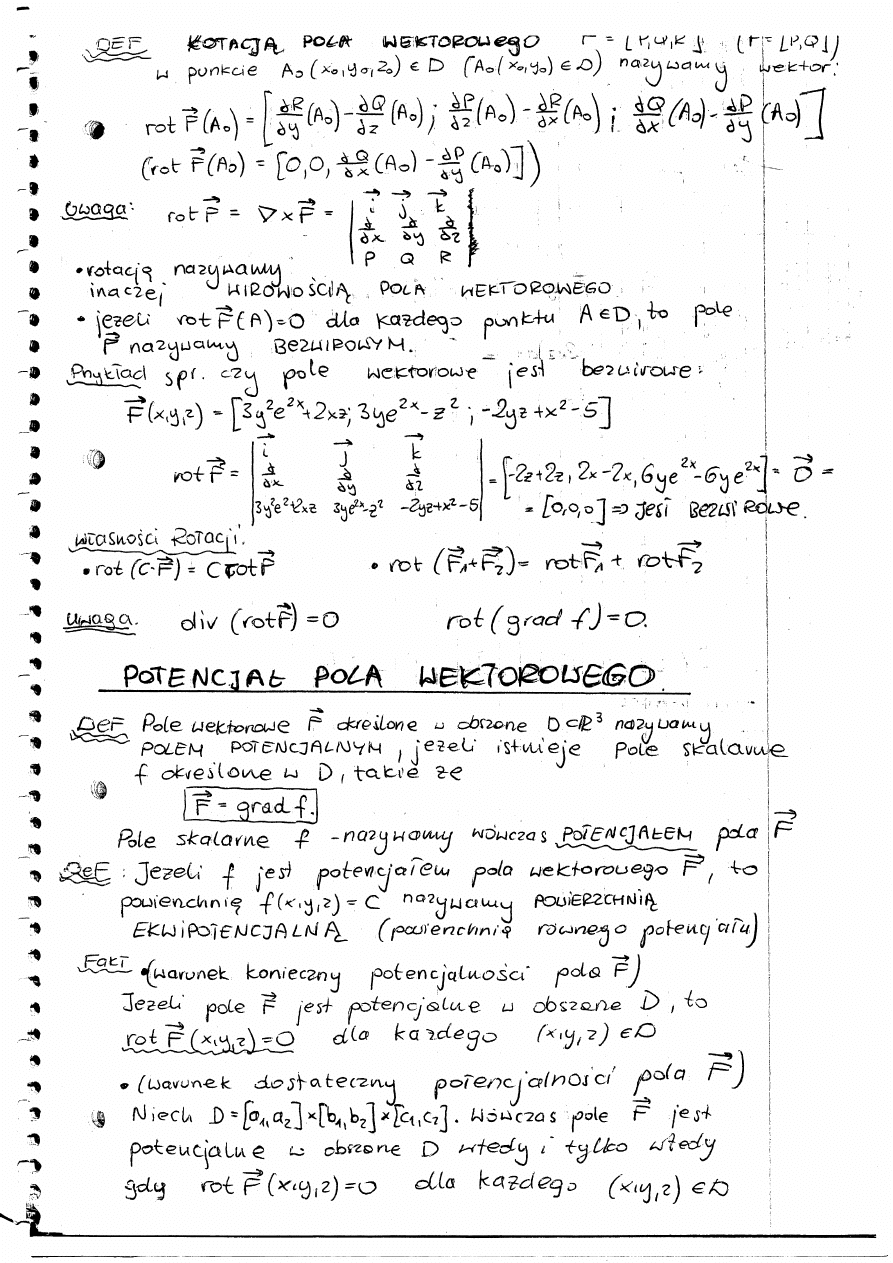 DEF ROTACJĄ POLA WEKTOROWEGO F = [P,Q,R] (F = [P,Q])
w punkcie A₀(x₀,y₀,z₀) ∈ D (A₀(x₀,y₀) ∈ D) nazywamy wektor:
rot F⃗(A₀) = [∂R/∂y (A₀) - ∂Q/∂z (A₀) ; ∂P/∂z (A₀) - ∂R/∂x (A₀) ; ∂Q/∂x (A₀) - ∂P/∂y (A₀)]
(rot F⃗(A₀) = [0,0, ∂Q/∂x (A₀) - ∂P/∂y (A₀)])
Uwaga: rot F⃗ = ∇ x F⃗ = | i⃗ j⃗ k⃗ |
| ∂/∂x ∂/∂y ∂/∂z |
| P Q R |
• rotację nazywamy
inaczej WIROWOŚCIĄ POLA WEKTOROWEGO
• jeżeli rot F⃗(A)=0 dla każdego punktu A∈D, to pole
F⃗ nazywamy BEZWIROWYM.
Przykład spr. czy pole wektorowe jest bezwirowe:
F⃗(x,y,z) = [3y²e²ˣ+2xz; 3ye²ˣ-z² ; -2yz+x²-5]
rot F⃗ = | i⃗ j⃗ k⃗ |
| ∂/∂x ∂/∂y ∂/∂z | = [-2z+2z, 2x-2x, 6ye²ˣ-6ye²ˣ] = 0⃗ =
| 3y²e²+2xz 3ye²ˣ-z² -2yz+x²-5 | = [0,0,0] => JEST BEZWIROWE.
Własności Rotacji:
• rot (C·F⃗) = C rot F⃗ • rot (F⃗₁+F⃗₂) = rot F⃗₁ + rot F⃗₂
Uwaga. div (rot F⃗) = 0 rot (grad f) = 0.
POTENCJAŁ POLA WEKTOROWEGO
DEF Pole wektorowe F⃗ określone w obszarze D⊂R³ nazywamy
POLEM POTENCJALNYM, jeżeli istnieje pole skalarne
f określone w D, takie że
F⃗ = grad f.
Pole skalarne f - nazywamy wówczas POTENCJAŁEM pola F⃗
DEF: Jeżeli f jest potencjałem pola wektorowego F⃗, to
powierzchnię f(x,y,z) = C nazywamy POWIERZCHNIĄ
EKWIPOTENCJALNĄ (powierzchnię równego potencjału)
Fakt • (warunek konieczny potencjalności pola F⃗)
Jeżeli pole F⃗ jest potencjalne w obszarze D, to
rot F⃗(x,y,z)=0 dla każdego (x,y,z) ∈D
• (warunek dostateczny potencjalności pola F⃗)
Niech D = [a₁,a₂] × [b₁,b₂] × [c₁,c₂]. Wówczas pole F⃗ jest
potencjalne w obszarze D wtedy i tylko wtedy
gdy rot F⃗(x,y,z)=0 dla każdego (x,y,z) ∈D